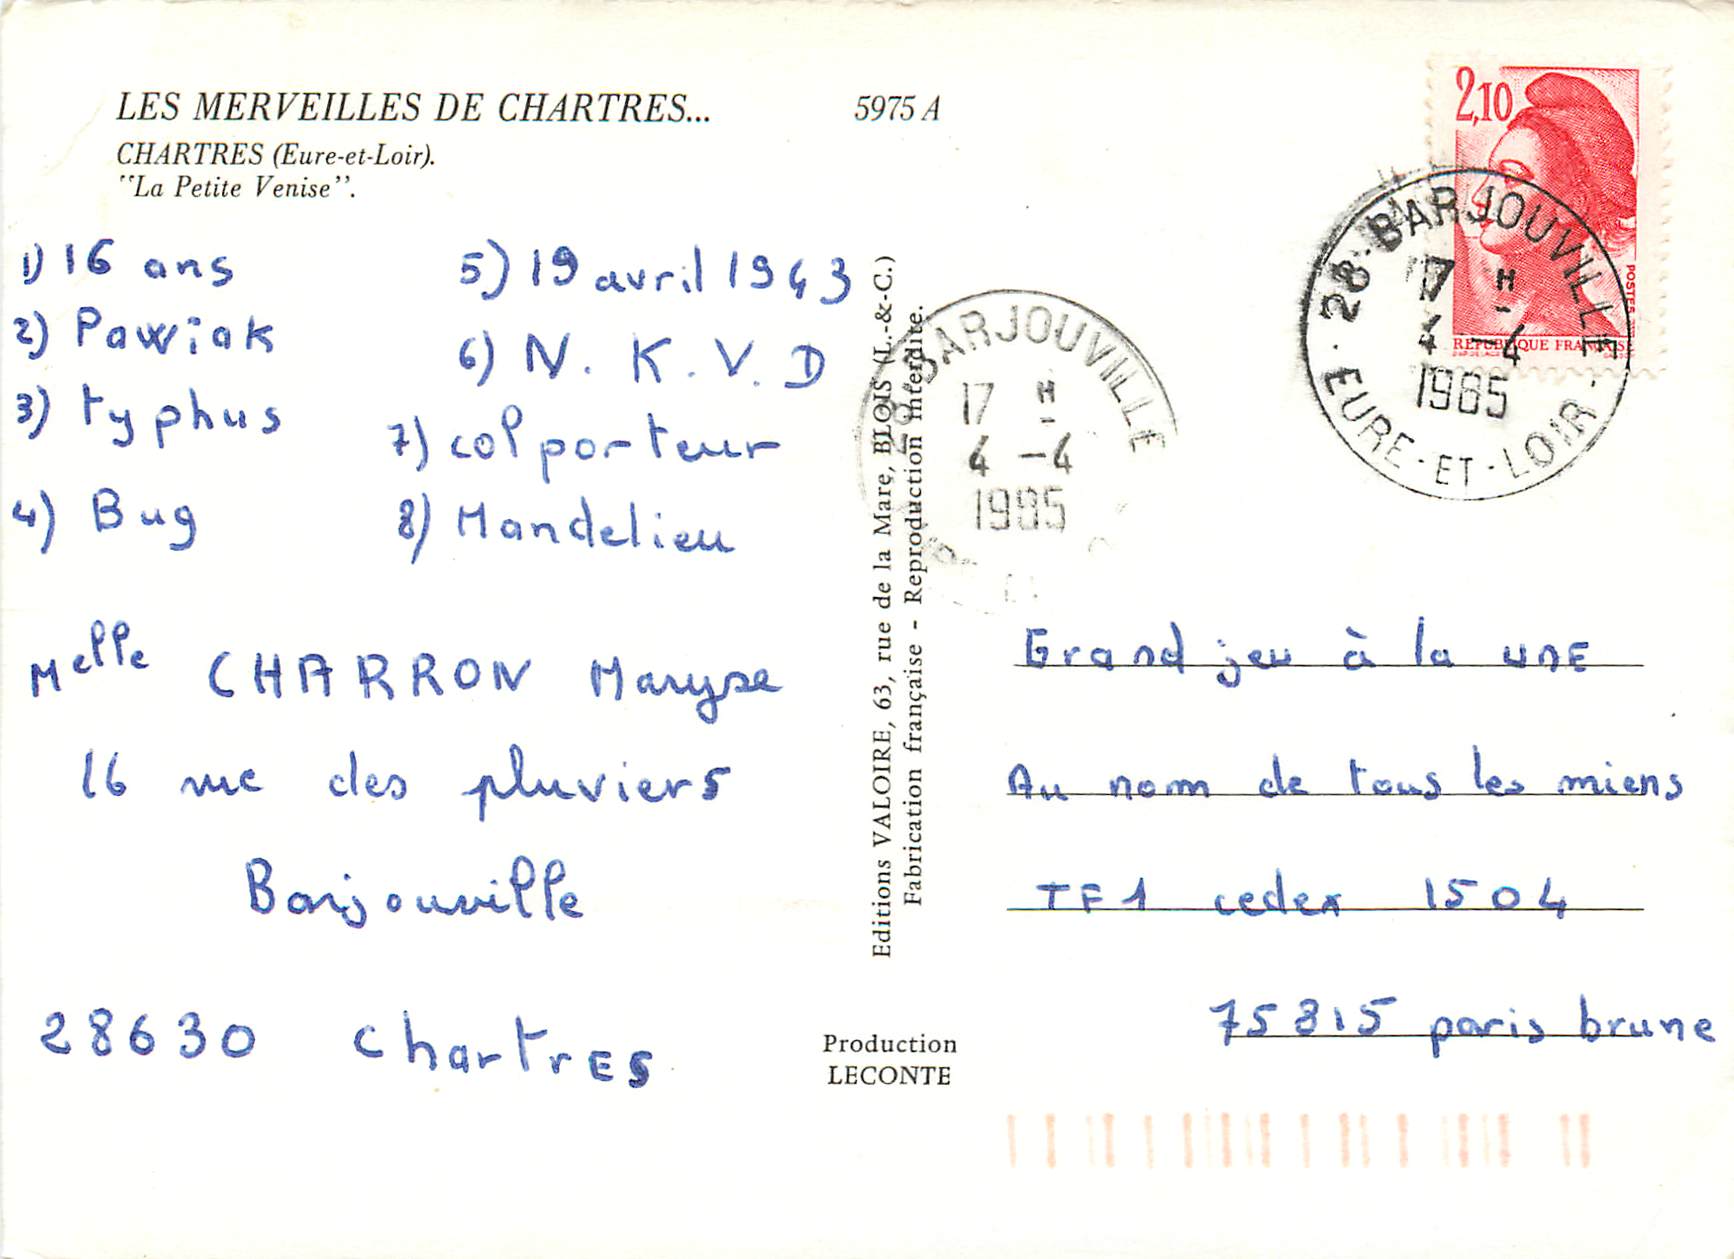 LES MERVEILLES DE CHARTRES... 5975 A
CHARTRES (Eure-et-Loir).
"La Petite Venise".
1) 16 ans
2) Pawiak
3) typhus
4) Bug
5) 19 avril 1943
6) N. K. V. D
7) colporteur
8) Mandelieu
Melle CHARRON Maryse
16 rue des pluviers
Barjouville
28630 chartrES
Editions VALOIRE, 63, rue de la Mare, BLOIS (L.-&-C.)
Fabrication française - Reproduction interdite.
Production
LECONTE
28 BARJOUVILLE
17 H
4 -4
1985
2,10
POSTES
REPUBLIQUE FRANÇAISE
28 · BARJOUVILLE
17 H
4 -4
1985
EURE-ET-LOIR
Grand jeu à la UNE
Au nom de tous les miens
TF1 cedex 1504
75315 paris brune